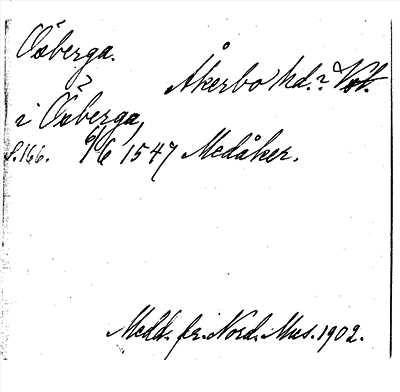 Öxberga.
Åkerbo hd. 2 Vstl.
i Öxberga,
S. 166. 6/6 1547 Medåker.
Medd. fr. Nord. Mus. 1902.